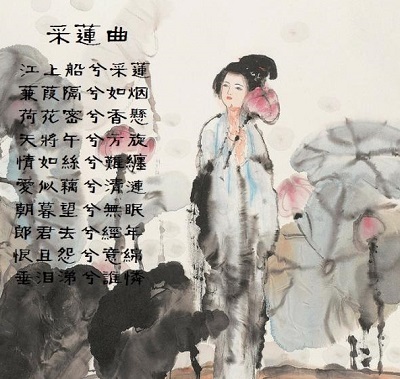 采蓮曲
江上船兮采蓮
蒹葭隔兮如烟
荷花密兮香懸
天將午兮方旋
情如絲兮難纏
愛似藕兮漬漣
朝暮望兮無眠
郎君去兮經年
恨且怨兮意綿
垂泪涕兮誰憐